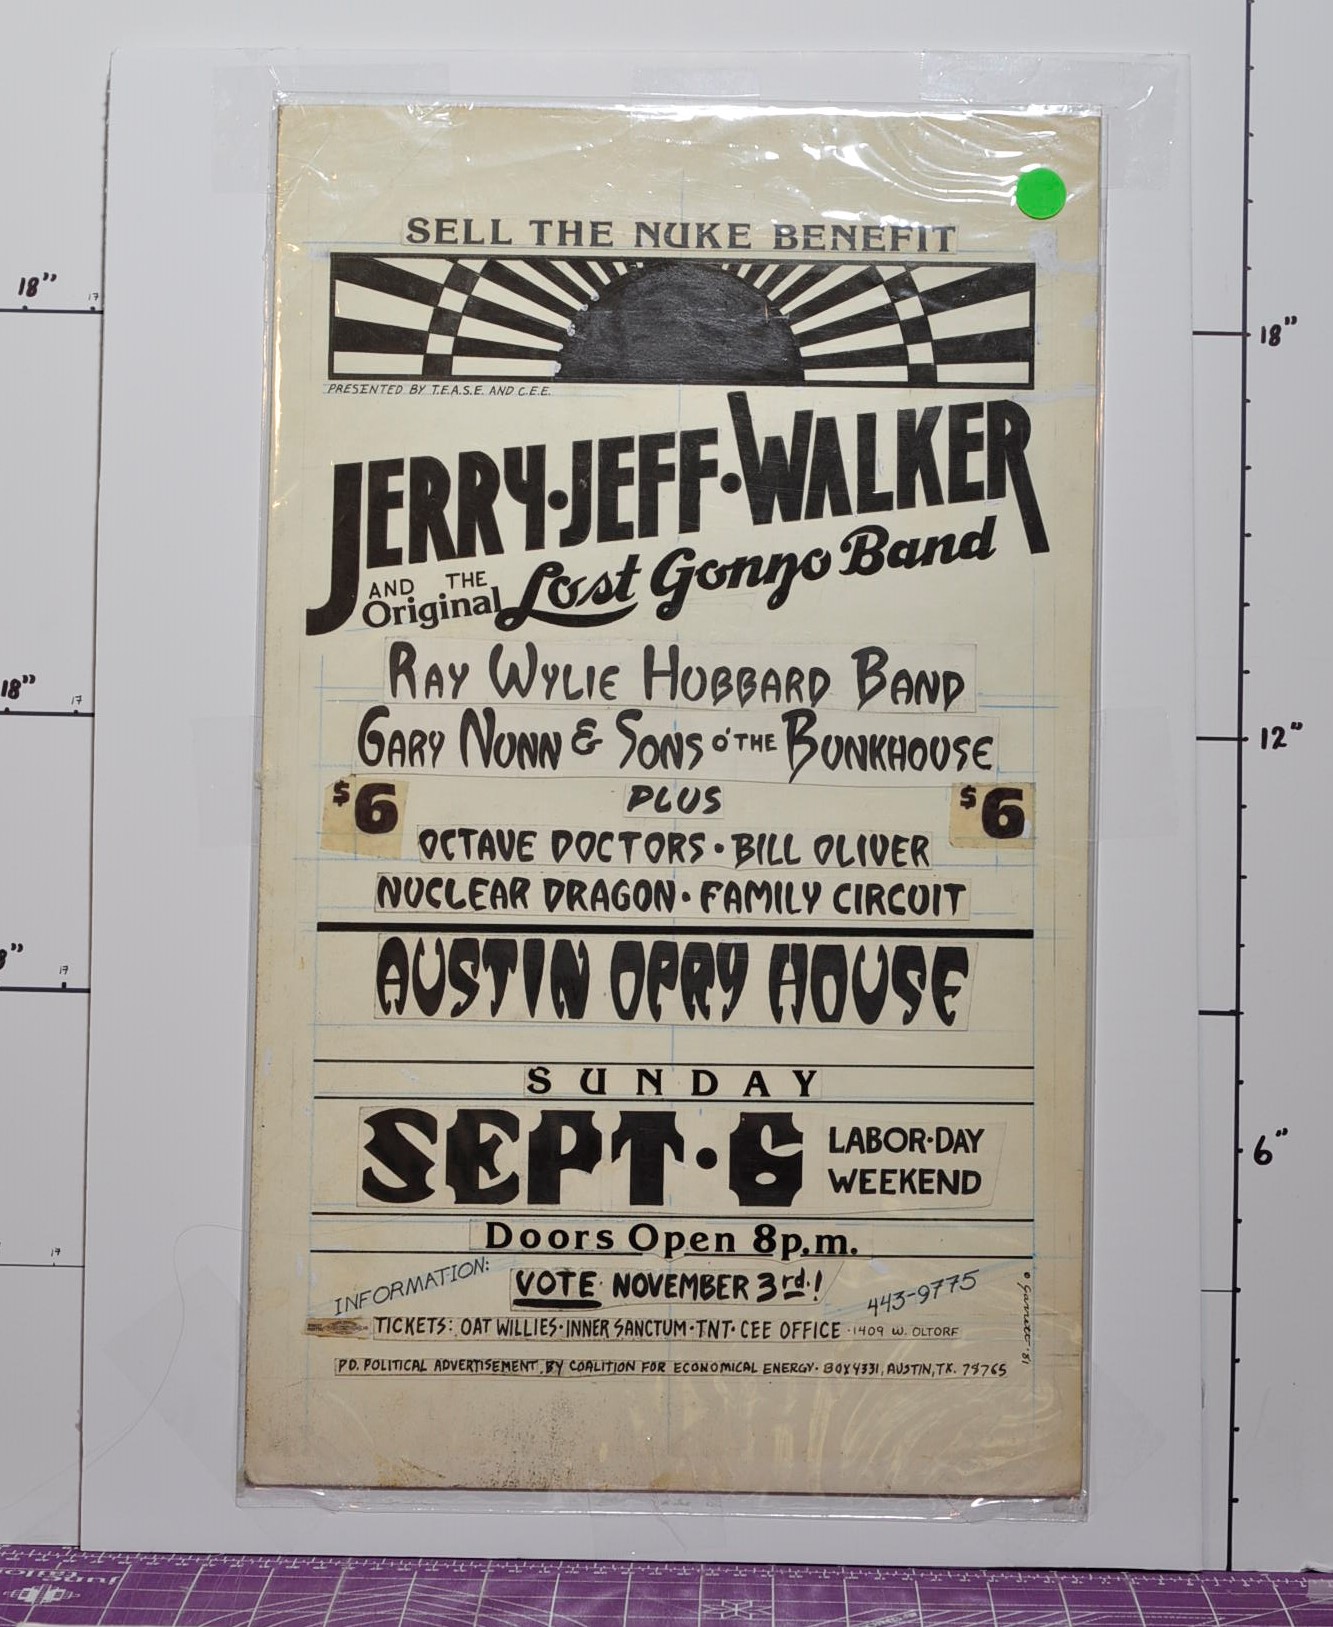 SELL THE NUKE BENEFIT
PRESENTED BY T.E.A.S.E. AND C.E.E.
JERRY·JEFF·WALKER
AND THE Original Lost Gonzo Band
RAY WYLIE HUBBARD BAND
GARY NUNN & SONS O' THE BUNKHOUSE
$6 PLUS $6
OCTAVE DOCTORS · BILL OLIVER
NUCLEAR DRAGON · FAMILY CIRCUIT
AUSTIN OPRY HOUSE
SUNDAY
SEPT·6 LABOR·DAY
WEEKEND
Doors Open 8p.m.
INFORMATION: 443-9775
VOTE NOVEMBER 3rd!
TICKETS: OAT WILLIES·INNER SANCTUM·TNT·CEE OFFICE ·1409 W. OLTORF
PD. POLITICAL ADVERTISEMENT BY COALITION FOR ECONOMICAL ENERGY· BOX 4331, AUSTIN, TX. 78765
© Garrett '81
18"
17
18"
17
17
17
18"
12"
6"